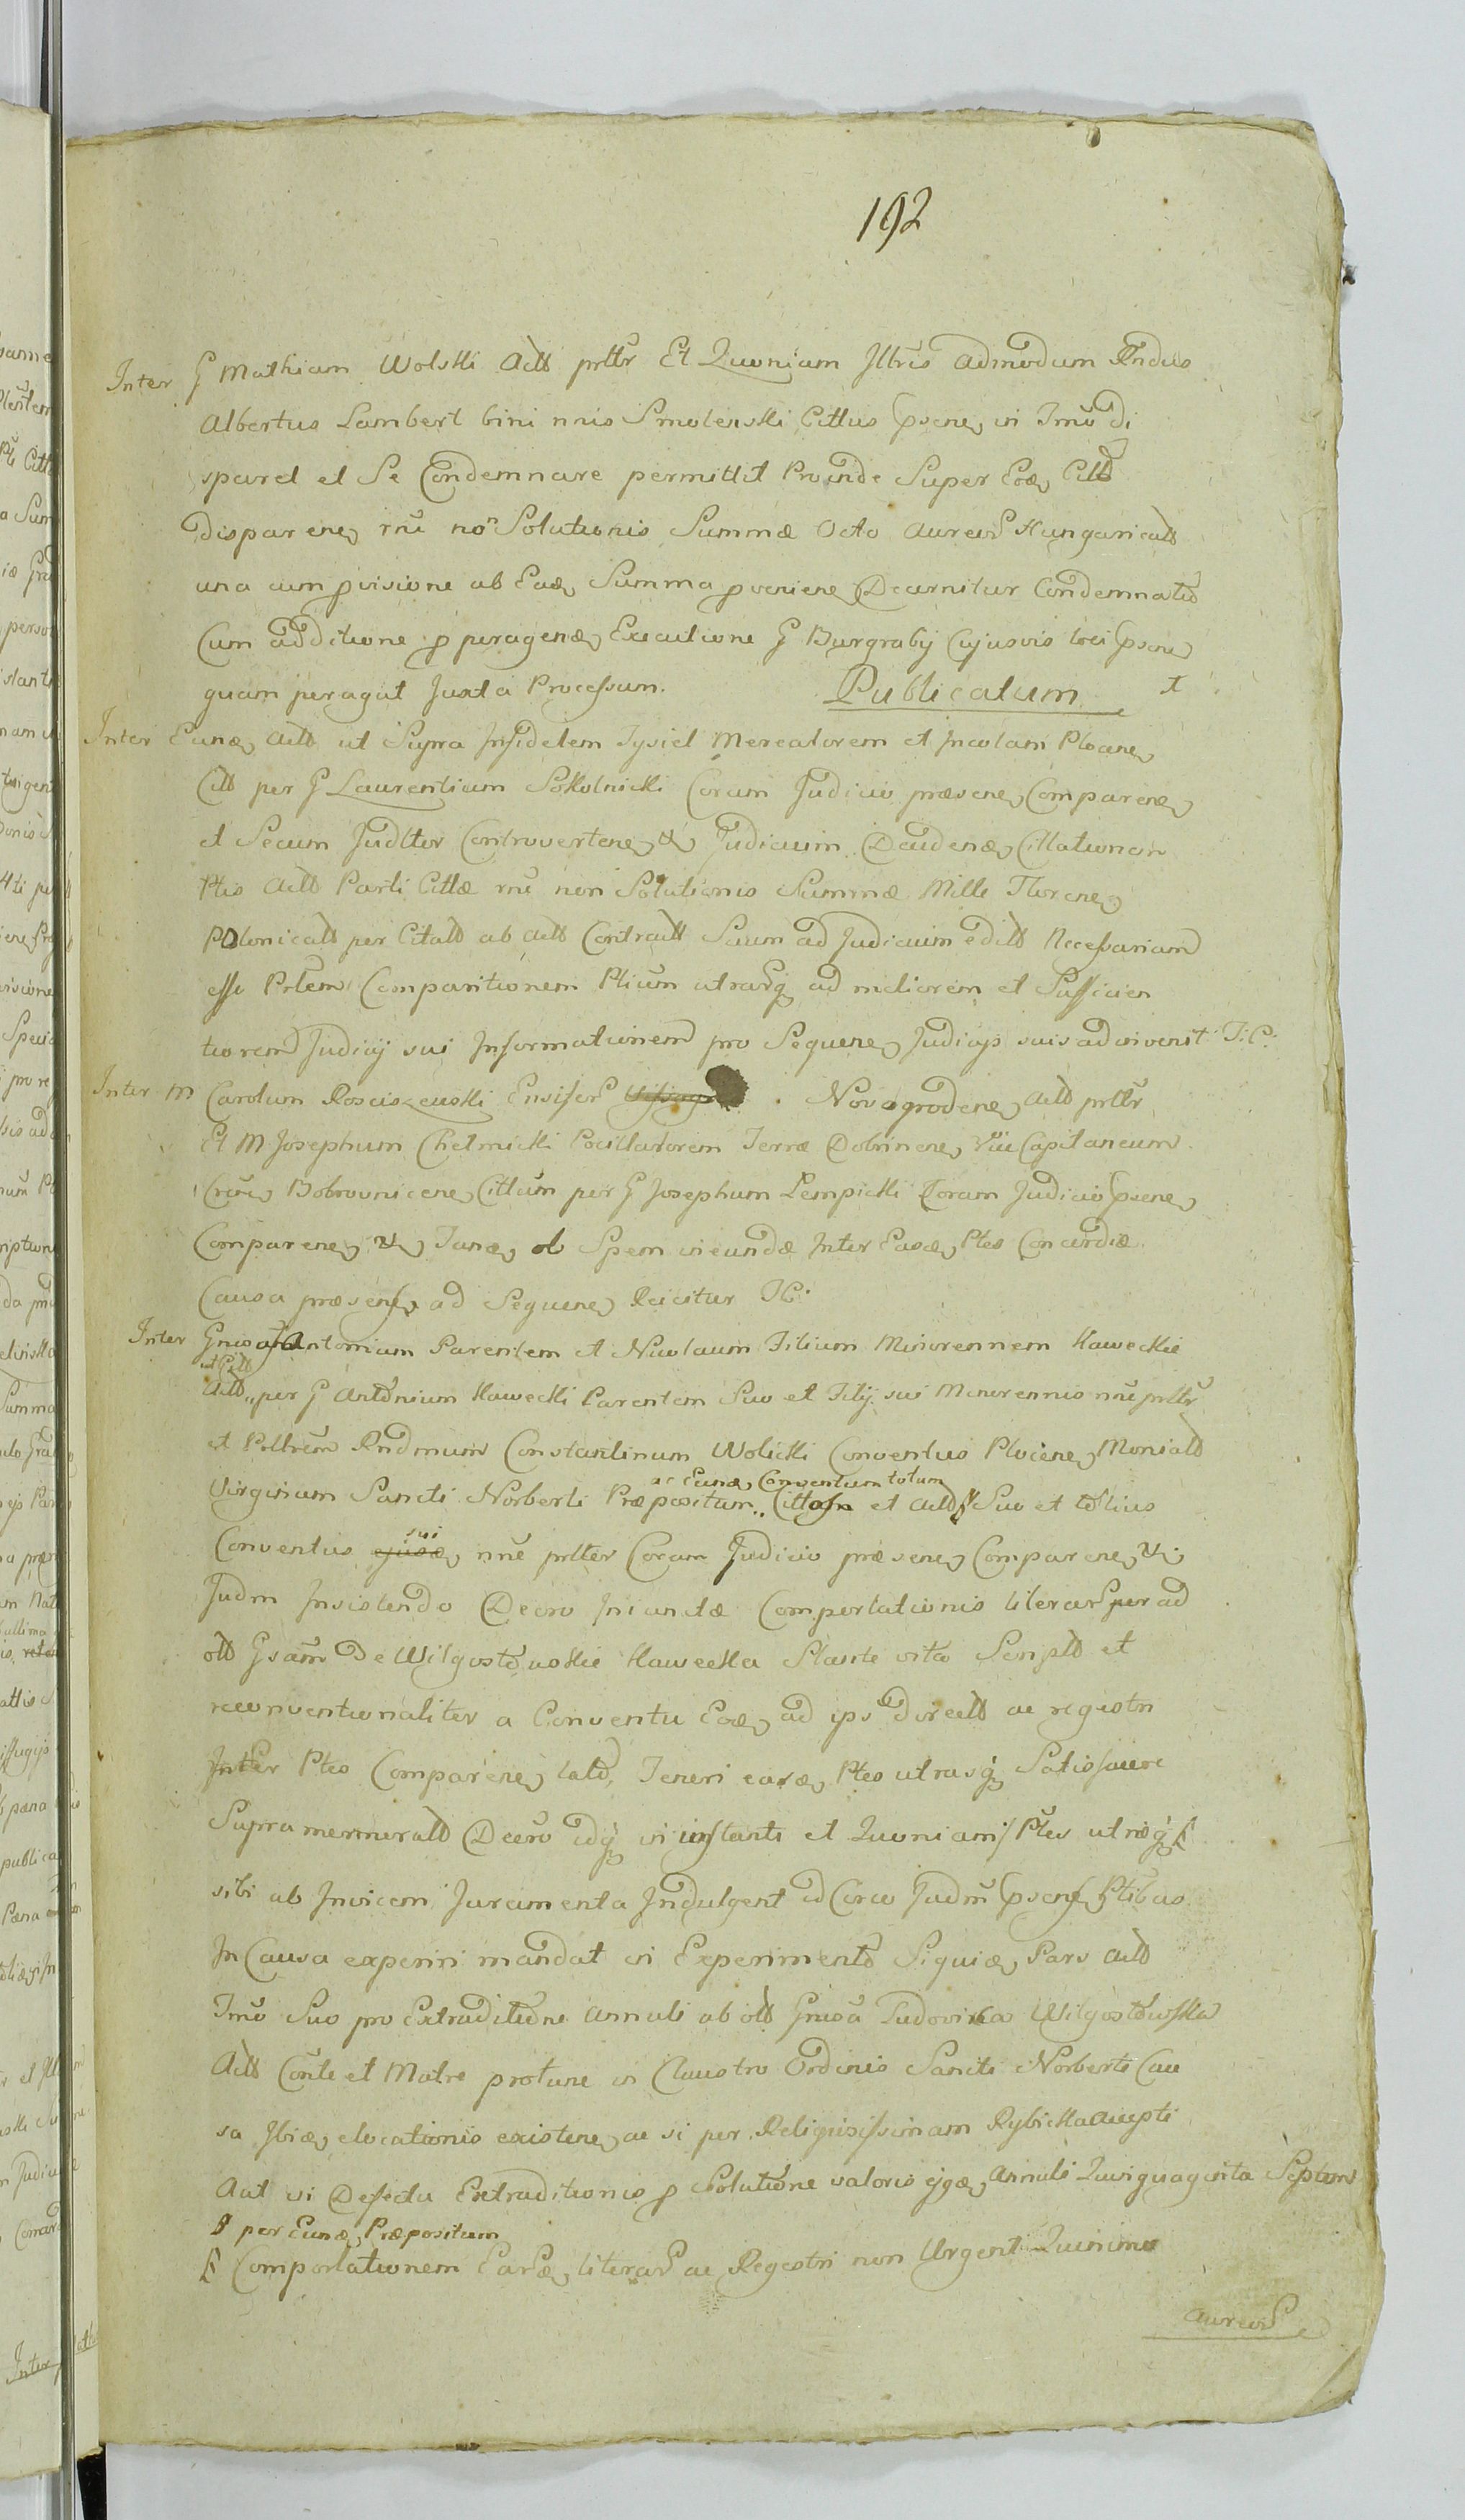 192
Inter G Mathiam Wolski Actt prttr Et Quoniam Jllris admodum Rndus
Albertus Lambert bini nnis Smolenski Cittus Psene, in Tmo di
sparet et Se Condemnare permittit Proinde Super Eod, Citt
disparene, rne non Solutionis Summæ Octo aureor Hungaricalt
una cum pvisione ab Ead, Summa pveniene Decernitur Condemnatio
Cum additione p peragend, Executione G Burgrabij Cujusvis loci Psene
quam peragat Juxta Processum. Publicatum t
Inter Eund, Actt ut Supra Infidelem Jysiel Mercatorem et Incolam Plocene,
Citt per G Laurentium Sokolnicki Coram Judicio præsene, Comparene,
et Secum Judltter Controvertene, & Judicium Decidend, Cittationem
Ptis Actt Parti Cittæ rne non Solutionis Summæ Mille Florene,
Polonicalt per Citatt ab Actt Contractt Suum ad Judicium editt Necessariam
esse Prtem Comparitionem Ptium utrarq ad meliorem et Sufficien
tiorem Judicij sui Informationem pro Sequene, Judicijs suis adinvenit T.C.
Inter M Carolum Rosciszewski Ensifer Novogrodene, Actt prttr
Et M Josephum Chelmicki Pocillatorem Terræ Dobrinene, Vice Capitaneum
Crem, Bobrownicene, Cittum per G Josephum Lempicki Coram Judicio Psene,
Comparene, & Tand, ob Spem ineundæ Inter Easd, Ptes Concordiæ
Causa præsens ad Sequene, Reicitur TC.
Inter Gnosos Antonium Parentem et Nicolaum Filium Minorennem Kaweckie
et Citt
Actt,, per G Antonium Kawecki Parentem Suo et Filij sui Minorennis nne prttr
et Pltrem Rndmum Constantinum Wolicki Conventus Plocene, Monialt
ac Eund, Conventum totum
Virginum Sancti Norberti Præpositum,, Cittos et Actt Suo et totius
sui
Conventus ejusd, nne prtter Coram Judicio præsene, Comparene, &.
Judm Insistendo Decro Iniunctæ Comportationis literar per ad
ott Gsam De Wilgostowskie Kawecka Stante vita Script et
reconventionaliter a Conventu Eod, ad ips directt ac regestri
Inter Ptes Comparene, latt, Teneri easd, Ptes utrasq Satisfacere
Supramemoratt Decro idq in instanti et Quoniam Ptes utræq
sibi ab Invicem Juramenta Indulgent idCirco Judm Psens Ptibus
In Causa experiri mandat in Experimento Siquid, Pars Actt
Tmo Suo pro Extraditione annuli ab ott Gnosa Ludovica Wilgostowska
Actt Conte et Matre protunc in Claustro Ordinis Sancti Norberti Cau
sa Ibid, elocationis existene, ac si per Religiosissimam Rybicka accepti
Aut in Defectu Extraditionis p Solutione valoris ejqd, Annuli Quinquaginta Septem
per Eund, Præpositum
Comportationem Eard, literar ac Regestri non Urgent Quinimo
aureor